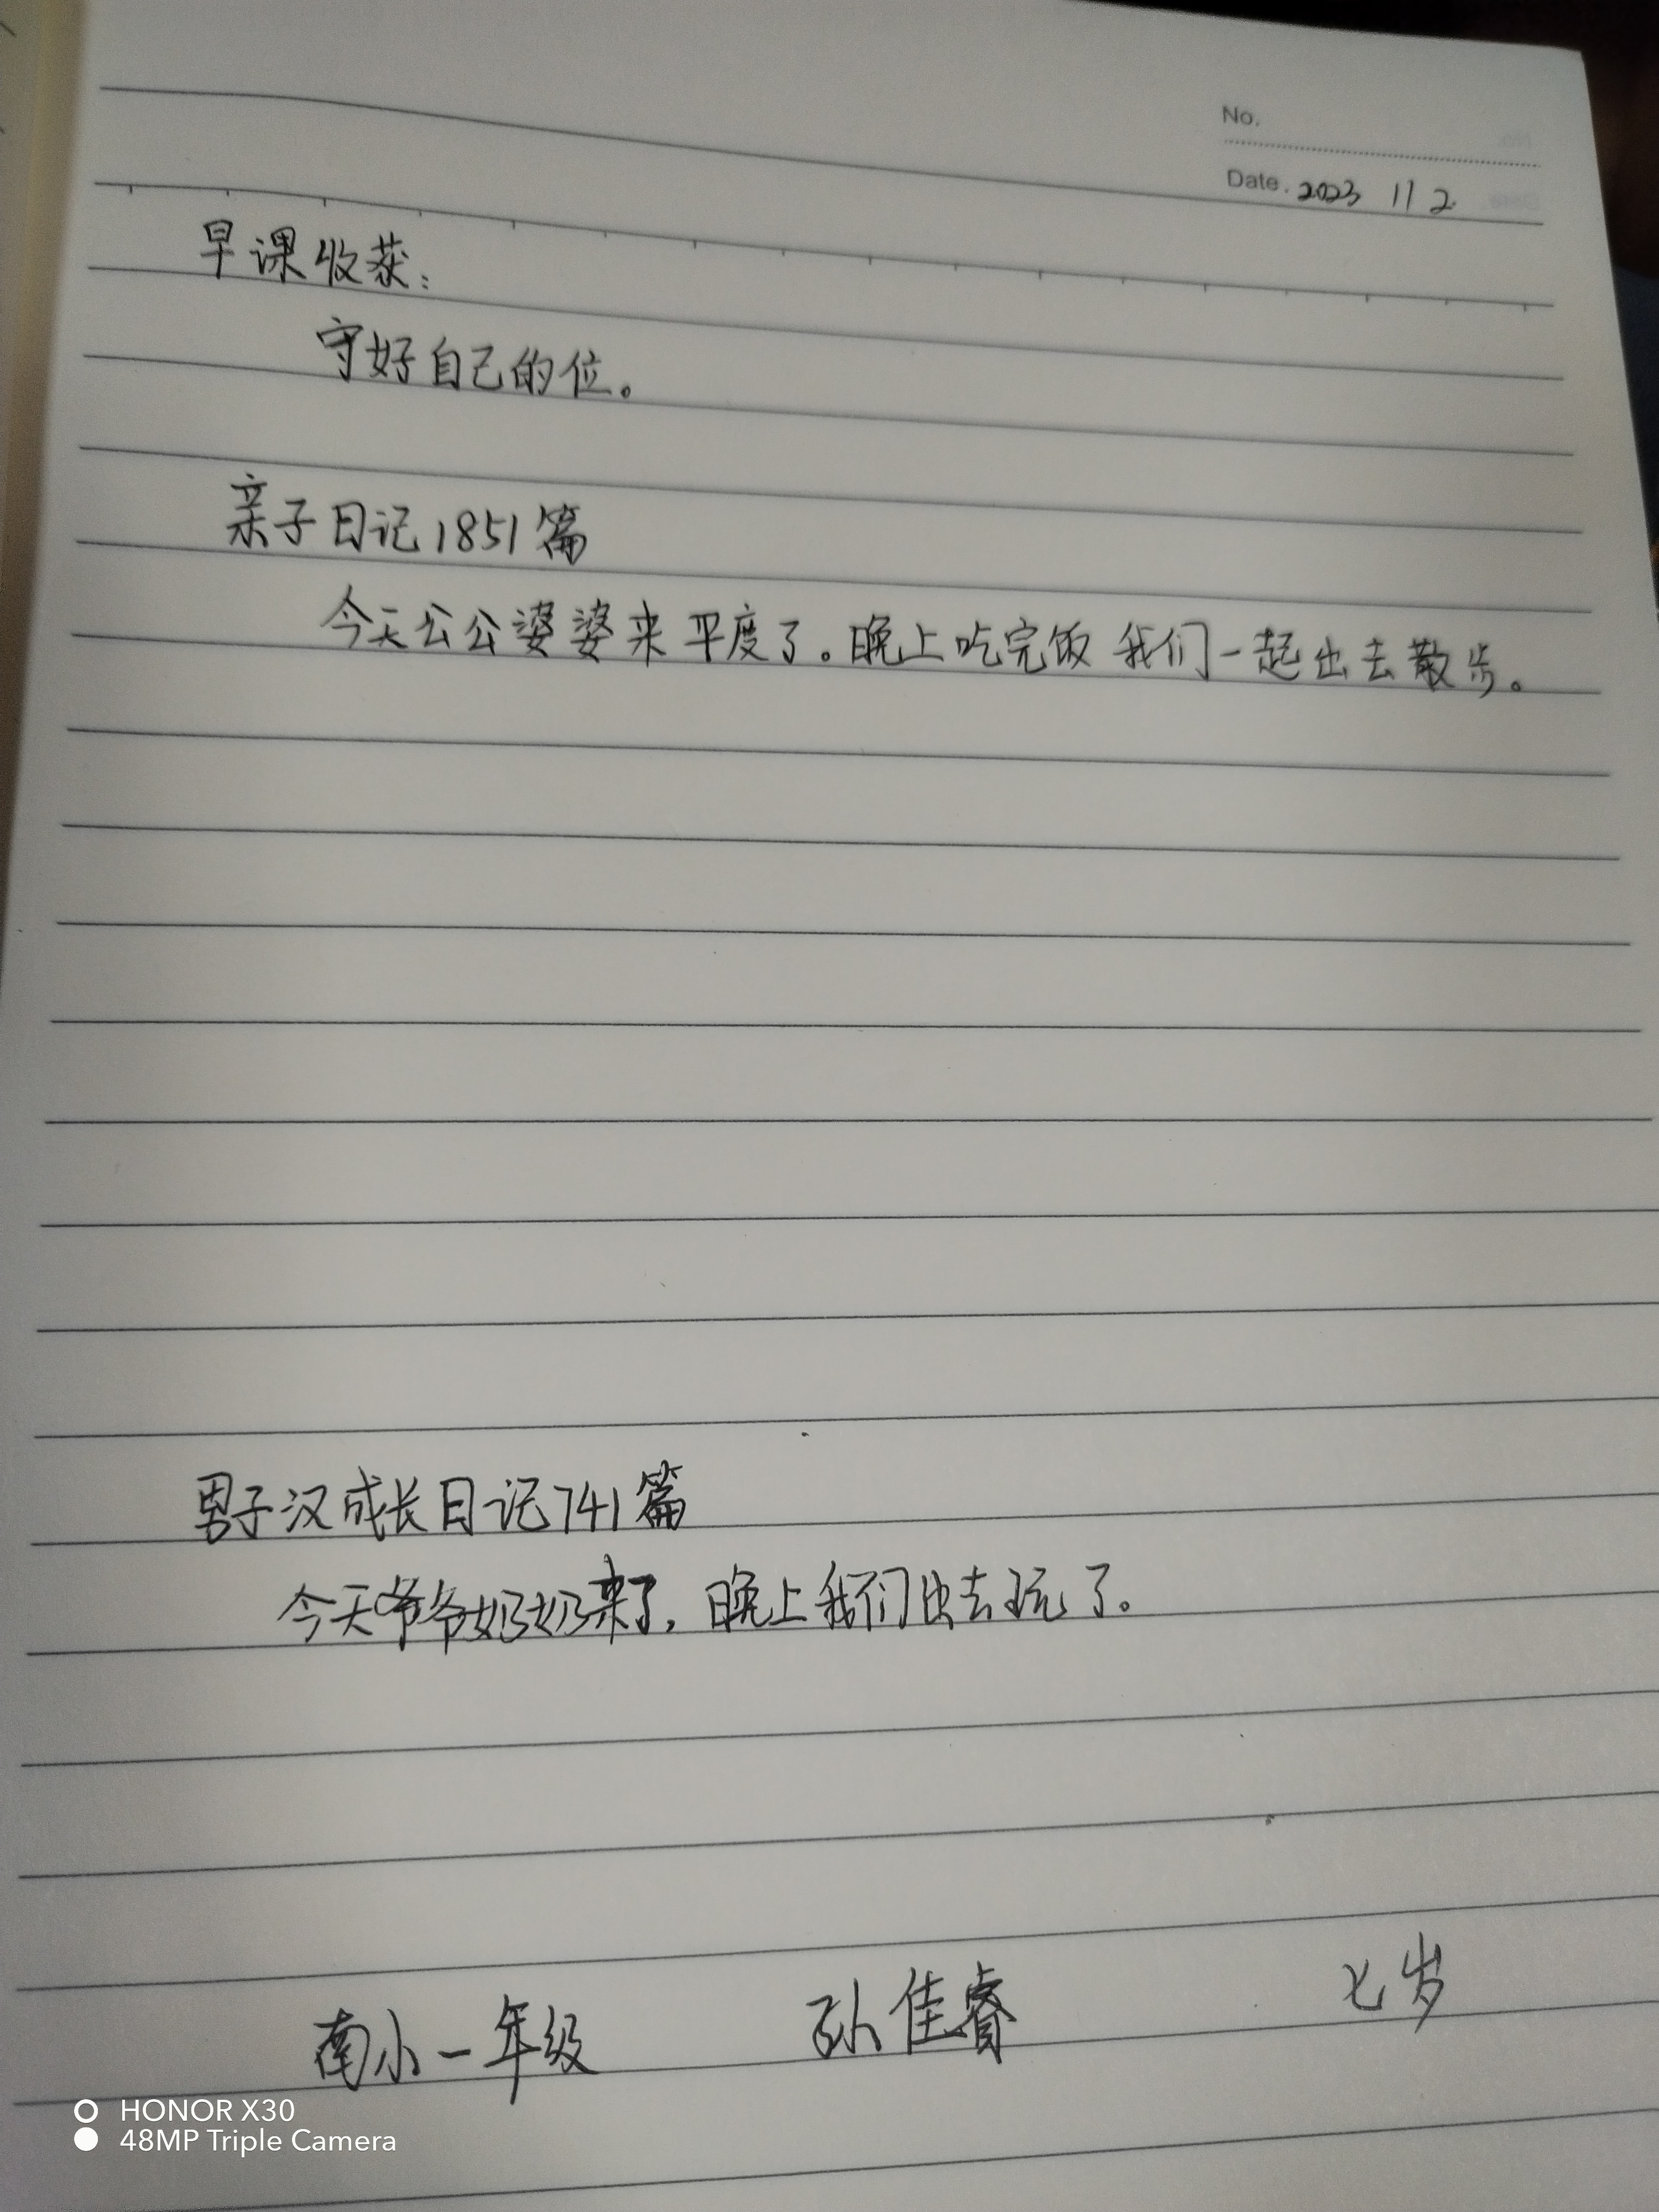 No.
Date. 2023 11 2
早课收获：
守好自己的位。
亲子日记1851篇
今天公公婆婆来平度了。晚上吃完饭我们一起出去散步。
男子汉成长日记741篇
今天爷爷奶奶来了，晚上我们出去玩了。
南小一年级 孙佳睿 七岁
HONOR X30
48MP Triple Camera